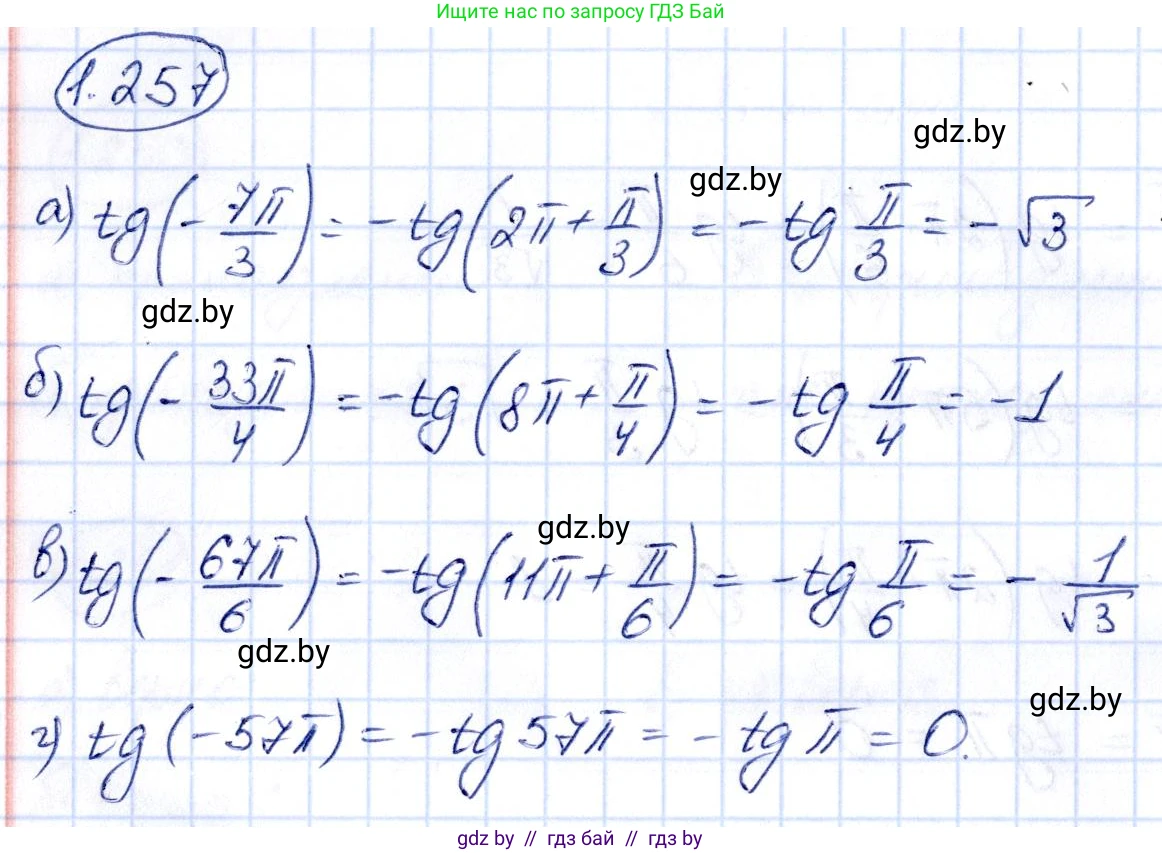 Ищите нас по запросу ГДЗ Бай
1.257
gdz.by
gdz.by
а) tg(-7π/3) = -tg(2π+π/3) = -tg π/3 = -√3
gdz.by
б) tg(-33π/4) = -tg(8π+π/4) = -tg π/4 = -1
gdz.by
в) tg(-67π/6) = -tg(11π+π/6) = -tg π/6 = -1/√3
gdz.by
gdz.by
г) tg(-57π) = -tg 57π = -tg π = 0.
gdz.by // гдз бай // гдз by